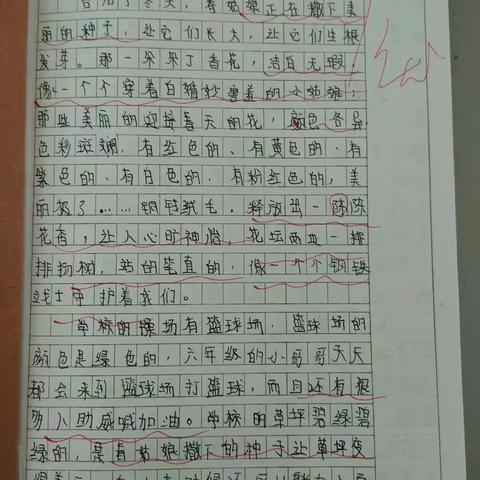 告别了冬天，春姑娘正在撒下美
丽的种子，让它们长大，让它们生根
发芽。那一朵朵丁香花，洁白无瑕，
像一个个穿着白婚纱害羞的小姑娘；
那些美丽的迎接春天的花，颜色各异，
色彩斑斓，有红色的、有黄色的、有
紫色的、有白色的、有粉红色的，美
丽极了……释放出一阵阵
花香，让人心旷神怡。花坛两一排
排杨树，站的笔直的，像一个个钢铁
战士守护着我们。
学校的操场有篮球场，篮球场的
颜色是绿色的，六年级的小哥哥天天
都会来到篮球场打篮球，而且还有很
多人助威喊加油。学校的草坪碧绿碧
绿的，是春姑娘撒下的种子让草坪变